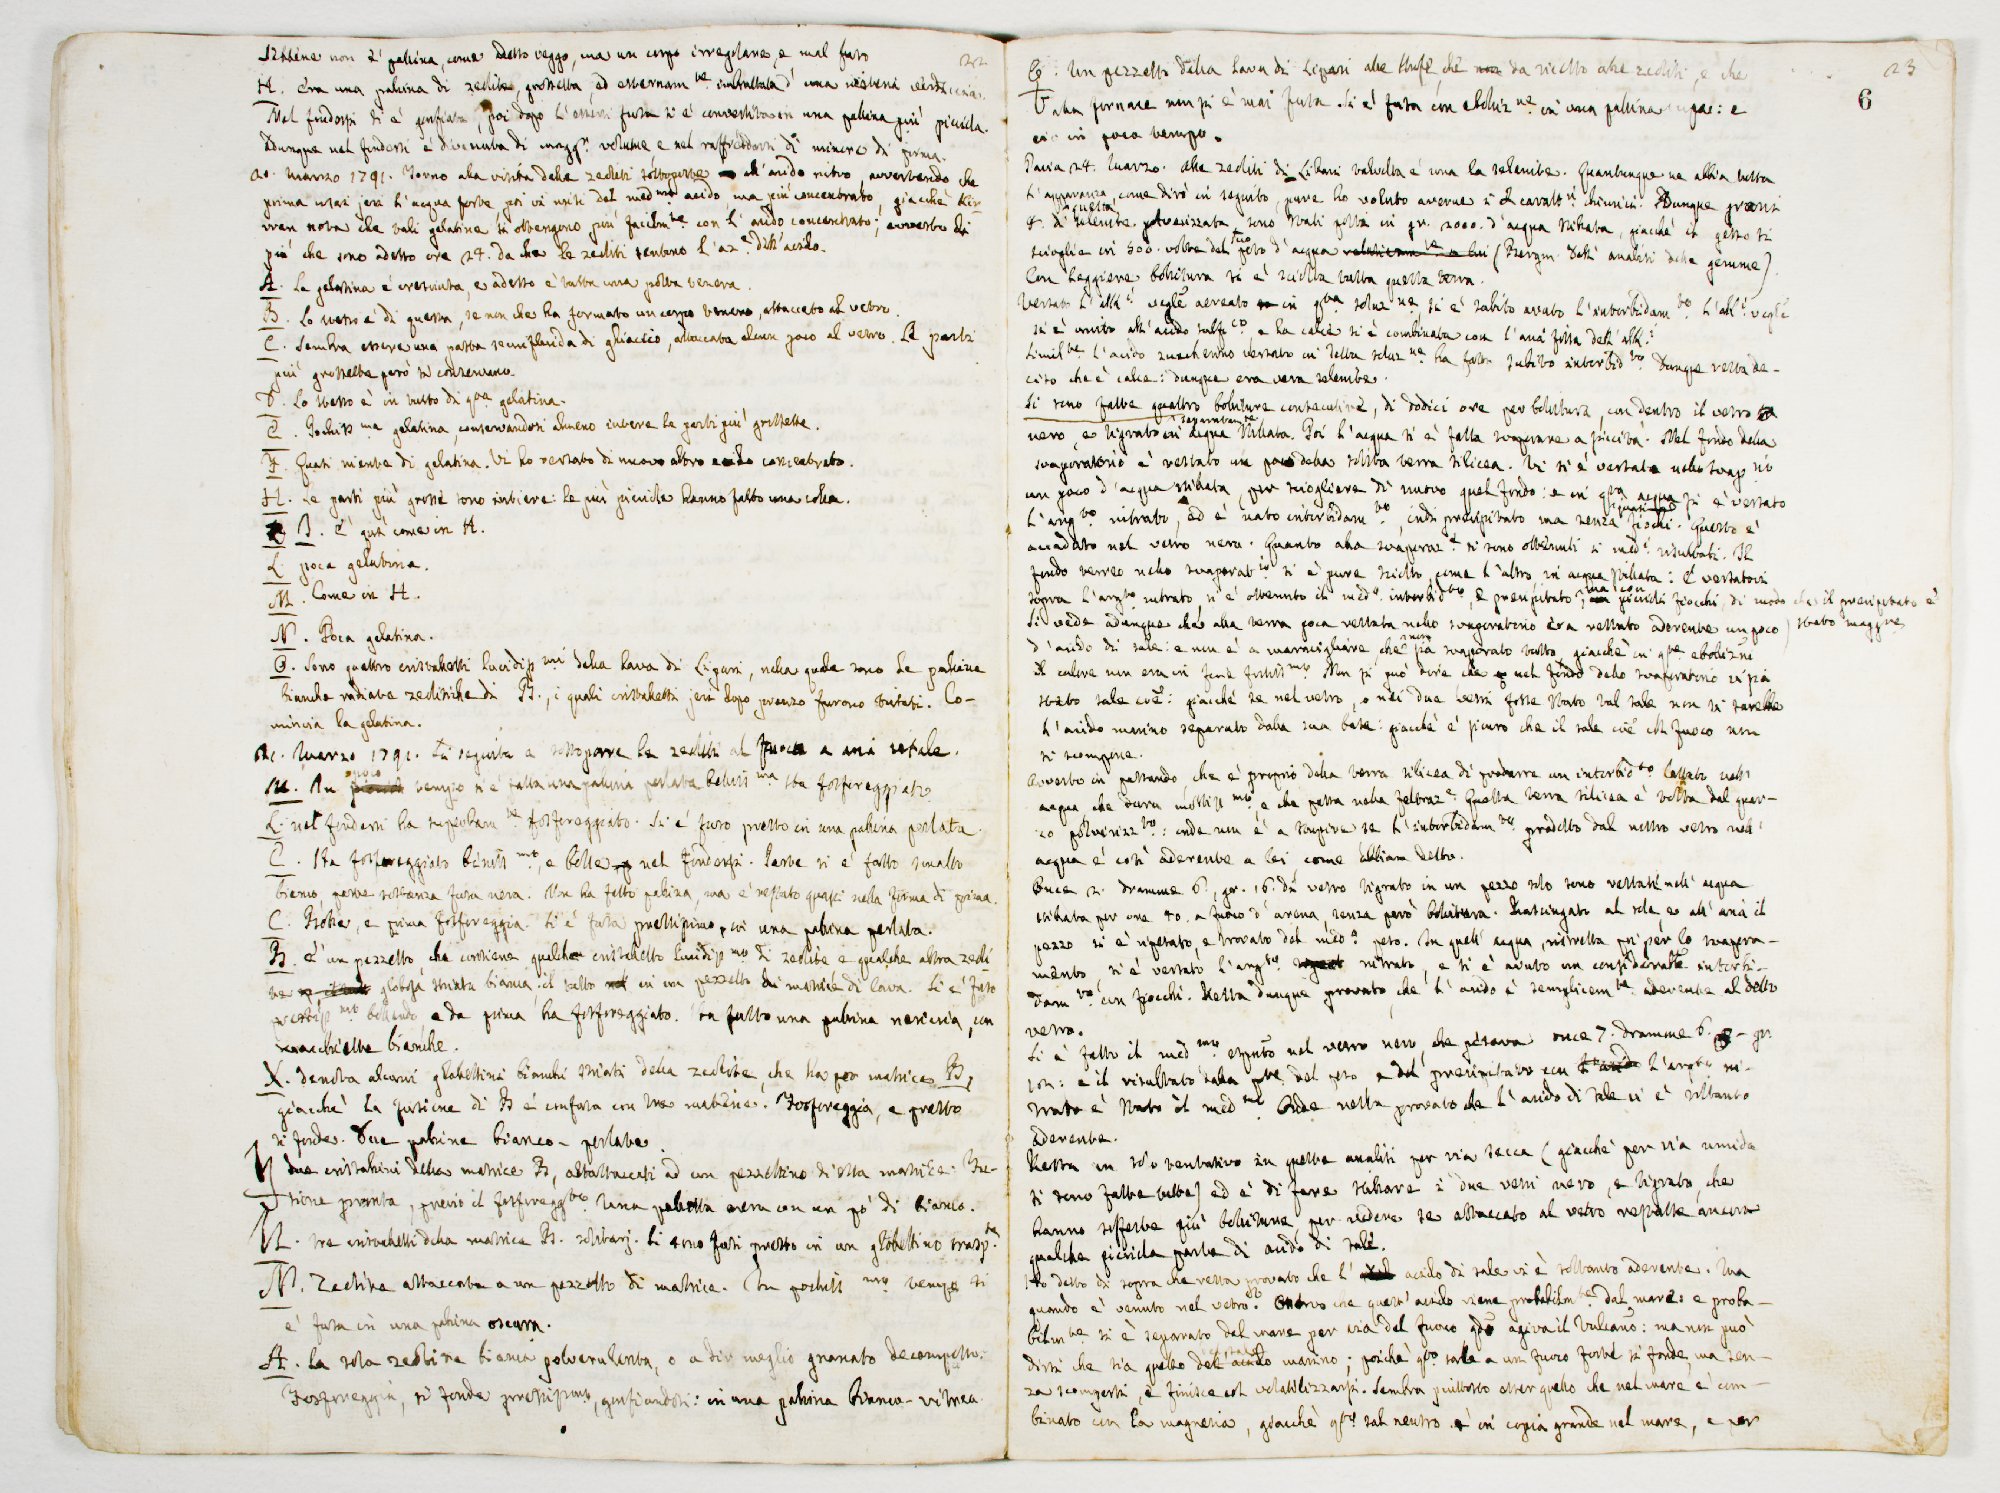 22
Sebbene non è pallina, come adesso veggo, ma un corpo irregolare, e mal fuso
H. Era una pallina di zeolite, grossetta, ed esternam.te incrostata d'una materia
Nel fondersi si è gonfiata, poi dopo l'essersi fusa si è convertita in una pallina più piccola.
Dunque nel fondersi è divenuta di magg.r volume e nel raffreddarsi di minore di prima.
20. Marzo 1791. Torno alla visita delle zeoliti sottoposte all'acido nitroso, avvertendo che
prima usai jeri l'acqua forte, poi vi misi del med.mo acido, ma più concentrato, giacchè Kir-
wan nota che tali gelatine si ottengono più facilm.te con l'acido concentrato; avverto di
più che sono adesso ore 24. da che le zeoliti sentono l'az.e dell'acido.
A. La gelatina è cresciuta, e adesso è tutta una polta tenera.
B. Lo stesso è di questa, se non che ha formato un corpo tenero, attaccato al vetro.
C. Sembra essere una pasta semifluida di ghiaccio, attaccata alcun poco al vetro. Le parti
più grossette però si conservano.
D. Lo stesso è in tutto di q.ta gelatina.
E. Pochiss.ma gelatina, conservandosi almeno intere le parti più grossette.
F. Quasi niente di gelatina. Vi ho versato di nuovo altro acido concentrato.
H. Le parti più grosse sono intiere: le più piccole hanno fatto una colla.
I. È quasi come in H.
L. poca gelatina.
M. Come in H.
N. Poca gelatina.
O. Sono quattro cristalletti lucidiss.mi della lava di Lipari, nella quale sono le palline
bianche radiate zeolitiche di B., i quali cristalletti jeri dopo pranzo furono buttati. Co-
mincia la gelatina.
21. Marzo 1791. In seguito a sottoporre le zeoliti al fuoco a aria vitale.
M. In poco tempo si è fatta una pallina perlata belliss.ma sta fosforeggiato
L. nel fondersi ha fosforeggiato. Si è fuso presto in una pallina perlata.
E. Ha fosforeggiato beniss.mo, e bolle nel fondersi. Parte si è fatto smalto
bianco, parte sostanza fusa nera. Non ha fatto pallina, ma è restato quasi nella forma di prima.
C. Bolle, e prima fosforeggia. Si è fusa prestissimo in una pallina perlata.
B. è un pezzetto, che contiene qualche cristalletto lucidiss.mo di zeolite e qualche altra zeoli-
te globosa striata bianca, il tutto in un pezzetto di matrice di lava. Si è fuso
prestiss.mo bollendo e da prima ha fosforeggiato. Ha fatto una pallina nericcia, con
macchiette bianche.
X. denota alcuni globettini bianchi striati della zeolite, che ha per matrice B,
giacchè la fusione di B è confusa con tre materie. Fosforeggia, e presto
si fonde. Due palline bianco-perlate.
Y due cristallini della matrice B, attaccati ad un pezzettino di essa matrice: Fu-
sione pronta, previo il fosforegg.to Una palletta nera con un pò di bianco.
Z. tre cristalletti della matrice B. solitarj. Si sono fusi presto in un globettino trasp.te
N. Zeolite attaccata a un pezzetto di matrice. In pochiss.mo tempo si
è fusa in una pallina oscura.
A. La sola zeolite bianca polverulenta, o a dir meglio granato decomposto:
Fosforeggia, si fonde prestiss.mo, gonfiandosi: in una pallina bianca-vitrea
23
6
Un pezzetto della lava di Lipari alle stufe, che da ricetto alle zeoliti, e che
alla fornace non si è mai fusa. Si è fusa con eboliz.ne in una pallina : e
ciò in poco tempo.
Pavia 24. Marzo. Alle zeoliti di Lipari talvolta è unita la selenite. Quantunque ne abbia tutta
l'apparenza, come dirò in seguito, pure ho voluto averne i caratt.ri chimici. Dunque grani
4. di questa selenite polverizzata sono stati posti in gr. 2000. d'acqua stillata, giacchè il gesso si
scioglie in 500. volte del suo peso d'acqua (Bergm. dell'analisi delle gemme).
Con leggiera bollitura si è sciolta tutta questa terra.
Versato l'alk.i veget. aereato in q.ta soluz.ne, si è subito avuto l'intorbidam.to L'alk.i veget.
si è unito all'acido sulf.co e la calce si è combinata con l'aria fissa dell'alk.i
Simil.te l'acido zuccherino versato in detta soluz.ne ha fatto subito intorbid.to Dunque resta de-
ciso che è calce: dunque era vera selenite.
Si sono fatte quattro bolliture consecutive, di dodici ore per bollitura, con dentro il vetro
nero, e tigrato separatam.te in acqua stillata. Poi l'acqua si è fatta svaporare a siccità. Nel fondo dello
svaporatorio è restato un poco della solita terra silicea. Vi si è versata nello svap.rio
un poco d'acqua stillata, per sciogliere di nuovo quel fondo: e in q.ta acqua si è versato
l'arg.to nitrato, ed è nato intorbidam.to, indi precipitato ma senza fiocchi. Questo è
accaduto nel vetro nero. Quanto alla svaporaz.e si sono ottenuti i med.i risultati. Il
fondo terreo nello svaporat.io si è pure sciolto, come l'altro, in acqua stillata: e versatovi
sopra l'arg.to nitrato, si è ottenuto il med.o intorbid.to, e precipitato, ma con piccioli fiocchi, di modo che il precipitato è
stato maggiore
Si vede adunque che alla terra poca restata nello svaporatorio era restato aderente un poco
d'acido di sale: e non è a maravigliare, che sia svaporato tutto, giacchè in q.te ebolizioni
il calore non era in fine fortiss.mo Non si può dire che nel fondo dello svaporatorio vi sia
stato sale coe: giacchè se nel vetro, o nei due vetri fosse stato tal sale non si sarebbe
l'acido marino separato dalla sua base: giacchè è sicuro che il sale coe col fuoco non
si scompone.
Avverto in passando che è proprio della terra silicea di produrre un intorbid.to lattato nell'
acqua che dura moltiss.mo, e che passa nella feltraz.e Questa terra silicea è tolta dal quar-
zo polverizz.to: onde non è a stupire se l'intorbidam.to prodotto dal nostro vetro nell'
acqua è così aderente a lei come abbiam detto.
Once 2. dramme 6, gr. 16. di vetro tigrato in un pezzo solo sono restati nell'acqua
stillata per ore 40. a fuoco d'arena, senza però bollitura. Rasciugato al sole e all'aria il
pezzo si è ripesato, e trovato del med.o peso. In quell'acqua, ristretta poi per lo svapora-
mento, si è versato l'arg.to nitrato, e si è avuto un considerabile intorbi-
dam.to con fiocchi. Resta dunque provato, che l'acido è semplicem.te aderente al detto
vetro.
Si è fatto il med.mo esperim.to nel vetro nero, che pesava once 7. dramme 6. gr.
: e il risultato del peso e del precipitato con l'arg.to ni-
trato è stato il med.mo Onde resta provato che l'acido di sale vi è soltanto
aderente.
Resta un solo tentativo in queste analisi per via secca (giacchè per via umida
si sono fatte tutte) ed è di fare stillare i due vetri nero, e tigrato, che
hanno sofferte più bolliture per vedere se attaccato al vetro restasse ancora
qualche picciola parte di acido di sale.
Ho detto di sopra che resta provato che l'acido di sale vi è soltanto aderente. Ma
quando è venuto nel vetro? Osservo che quest'acido viene probabilm.te dal mare: e proba-
bilm.te si è separato dal mare per via del fuoco, q.do agiva il Vulcano: ma non può
dirsi che sia quello del marino; poichè q.to sale a un fuoco forte si fonde, ma sen-
za scomporsi, e finisce col volatilizzarsi. Sembra piuttosto esser quello che nel mare è com-
binato con la magnesia, giacchè q.to sal neutro è in copia grande nel mare, e per